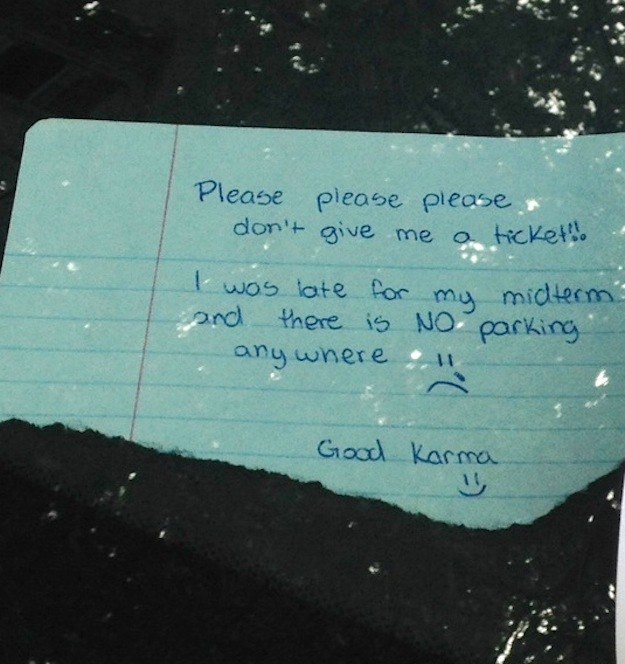 Please please please
don't give me a ticket!!!
I was late for my midterm
and there is NO parking
anywhere
Good Karma